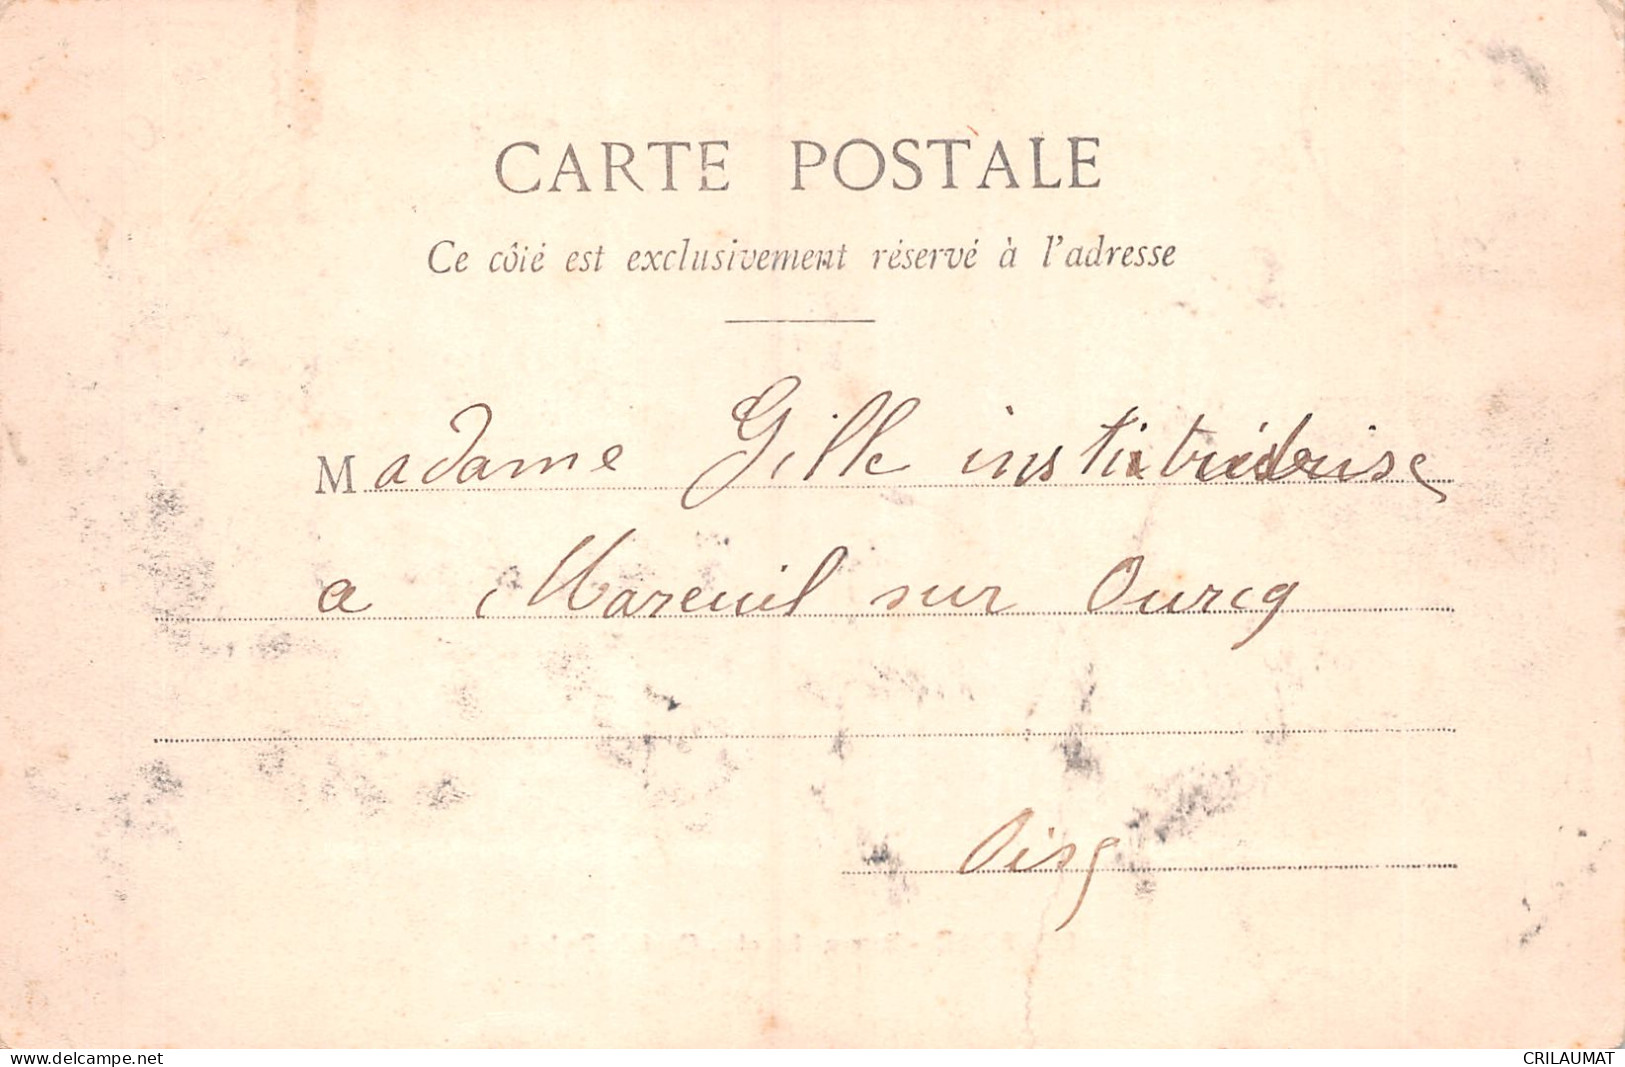 CARTE POSTALE
Ce côté est exclusivement réservé à l'adresse
Madame Gille institutrise
a Mareuil sur Ourcq
Oise
www.delcampe.net
CRILAUMAT